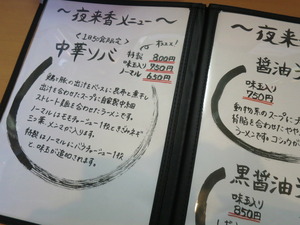 ～夜来香メニュー～
＜1日50食限定＞
中華ソバ
特製 800円
味玉入り 750円
ノーマル 650円
鶏と豚の出汁をベースに昆布と煮干し
出汁を合わせたスープに自家製中細
ストレート麺を合わせたラーメンです。
ノーマルにはモモチャーシュー1枚と
三つ葉、メンマが入ります。
特製はノーマルにバラチャーシュー1枚
と味玉が追加されます。
～夜来香
醤油
味玉入り
750円
動物系のスープに
ラーメンです。
黒醤油
味玉入り
850円